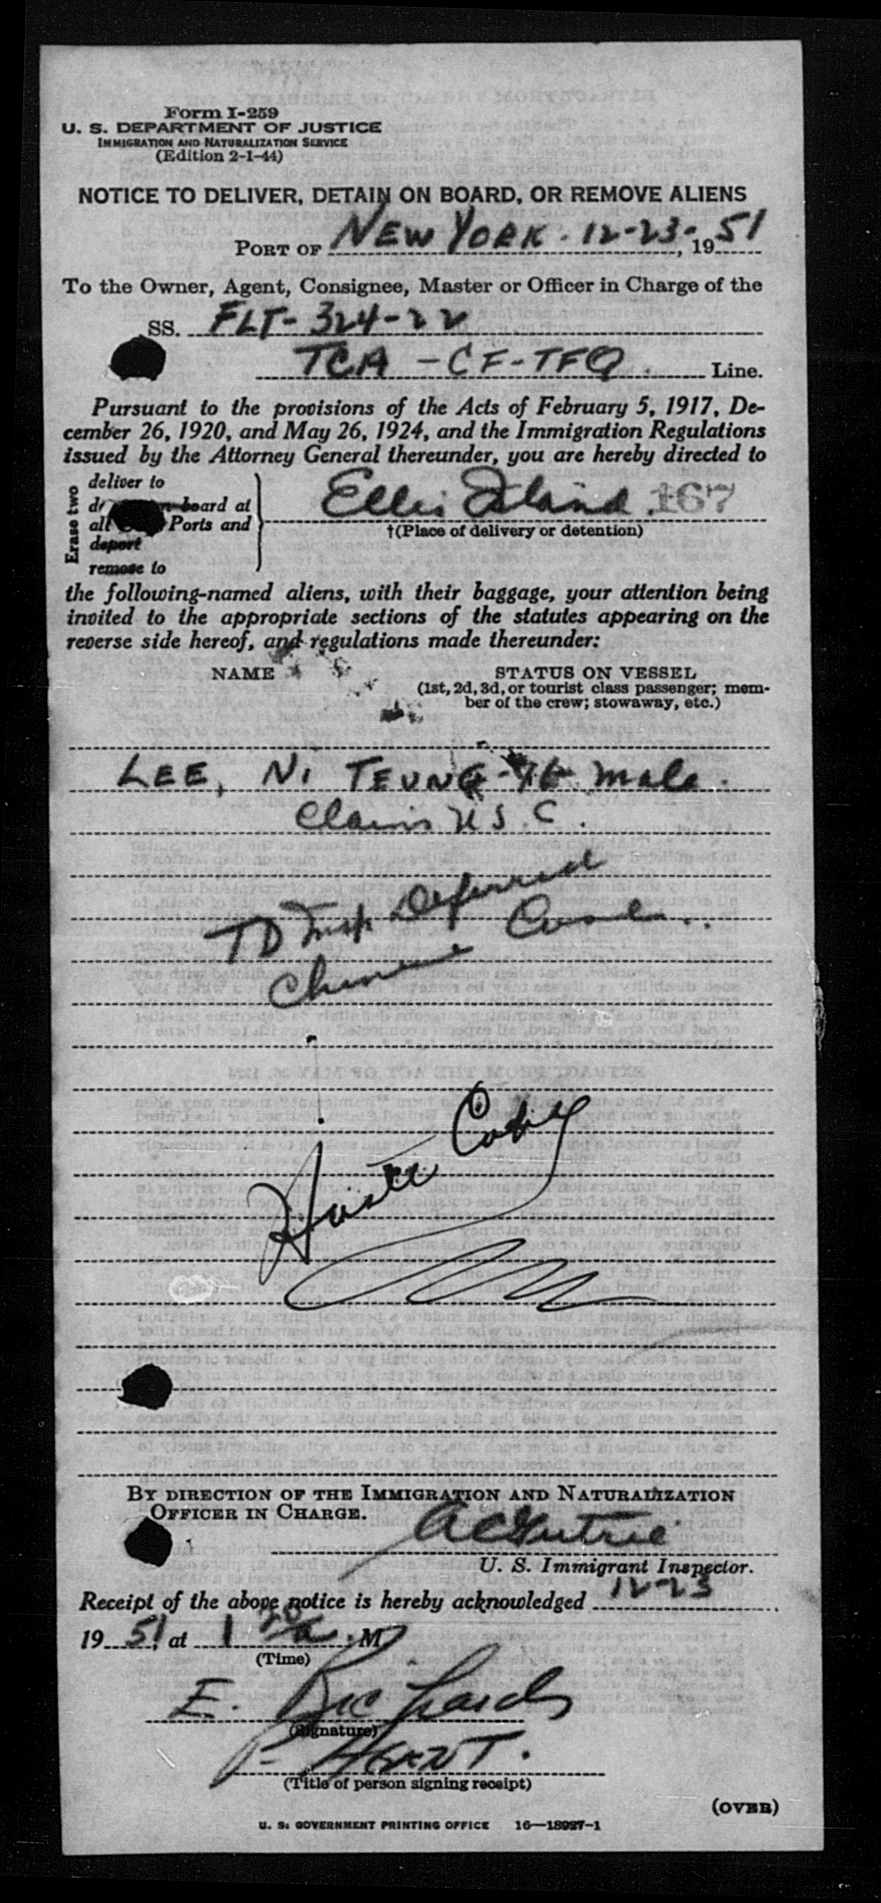 Form I-259
U. S. DEPARTMENT OF JUSTICE
IMMIGRATION AND NATURALIZATION SERVICE
(Edition 2-1-44)
NOTICE TO DELIVER, DETAIN ON BOARD, OR REMOVE ALIENS
PORT OF NEW YORK. 12-23-, 1951
To the Owner, Agent, Consignee, Master or Officer in Charge of the
SS. FLT-324-22
TCA - CF-TFQ. Line.
Pursuant to the provisions of the Acts of February 5, 1917, De-
cember 26, 1920, and May 26, 1924, and the Immigration Regulations
issued by the Attorney General thereunder, you are hereby directed to
Erase two
deliver to
board at
all Ports and
deport
remove to
Ellis Island. 167
†(Place of delivery or detention)
the following-named aliens, with their baggage, your attention being
invited to the appropriate sections of the statutes appearing on the
reverse side hereof, and regulations made thereunder:
NAME STATUS ON VESSEL
(1st, 2d, 3d, or tourist class passenger; mem-
ber of the crew; stowaway, etc.)
LEE, NI TEUNG- male.
Claims U S. C.
TD Insp Deferred
Chinese Case..
By direction of the Immigration and Naturalization
Officer in Charge.
U. S. Immigrant Inspector.
Receipt of the above notice is hereby acknowledged 12-23
19 51, at 1 20 a. M
(Time)
E. Richards
(Signature)
AGENT.
(Title of person signing receipt)
(OVER)
U. S. GOVERNMENT PRINTING OFFICE 16—18927-1